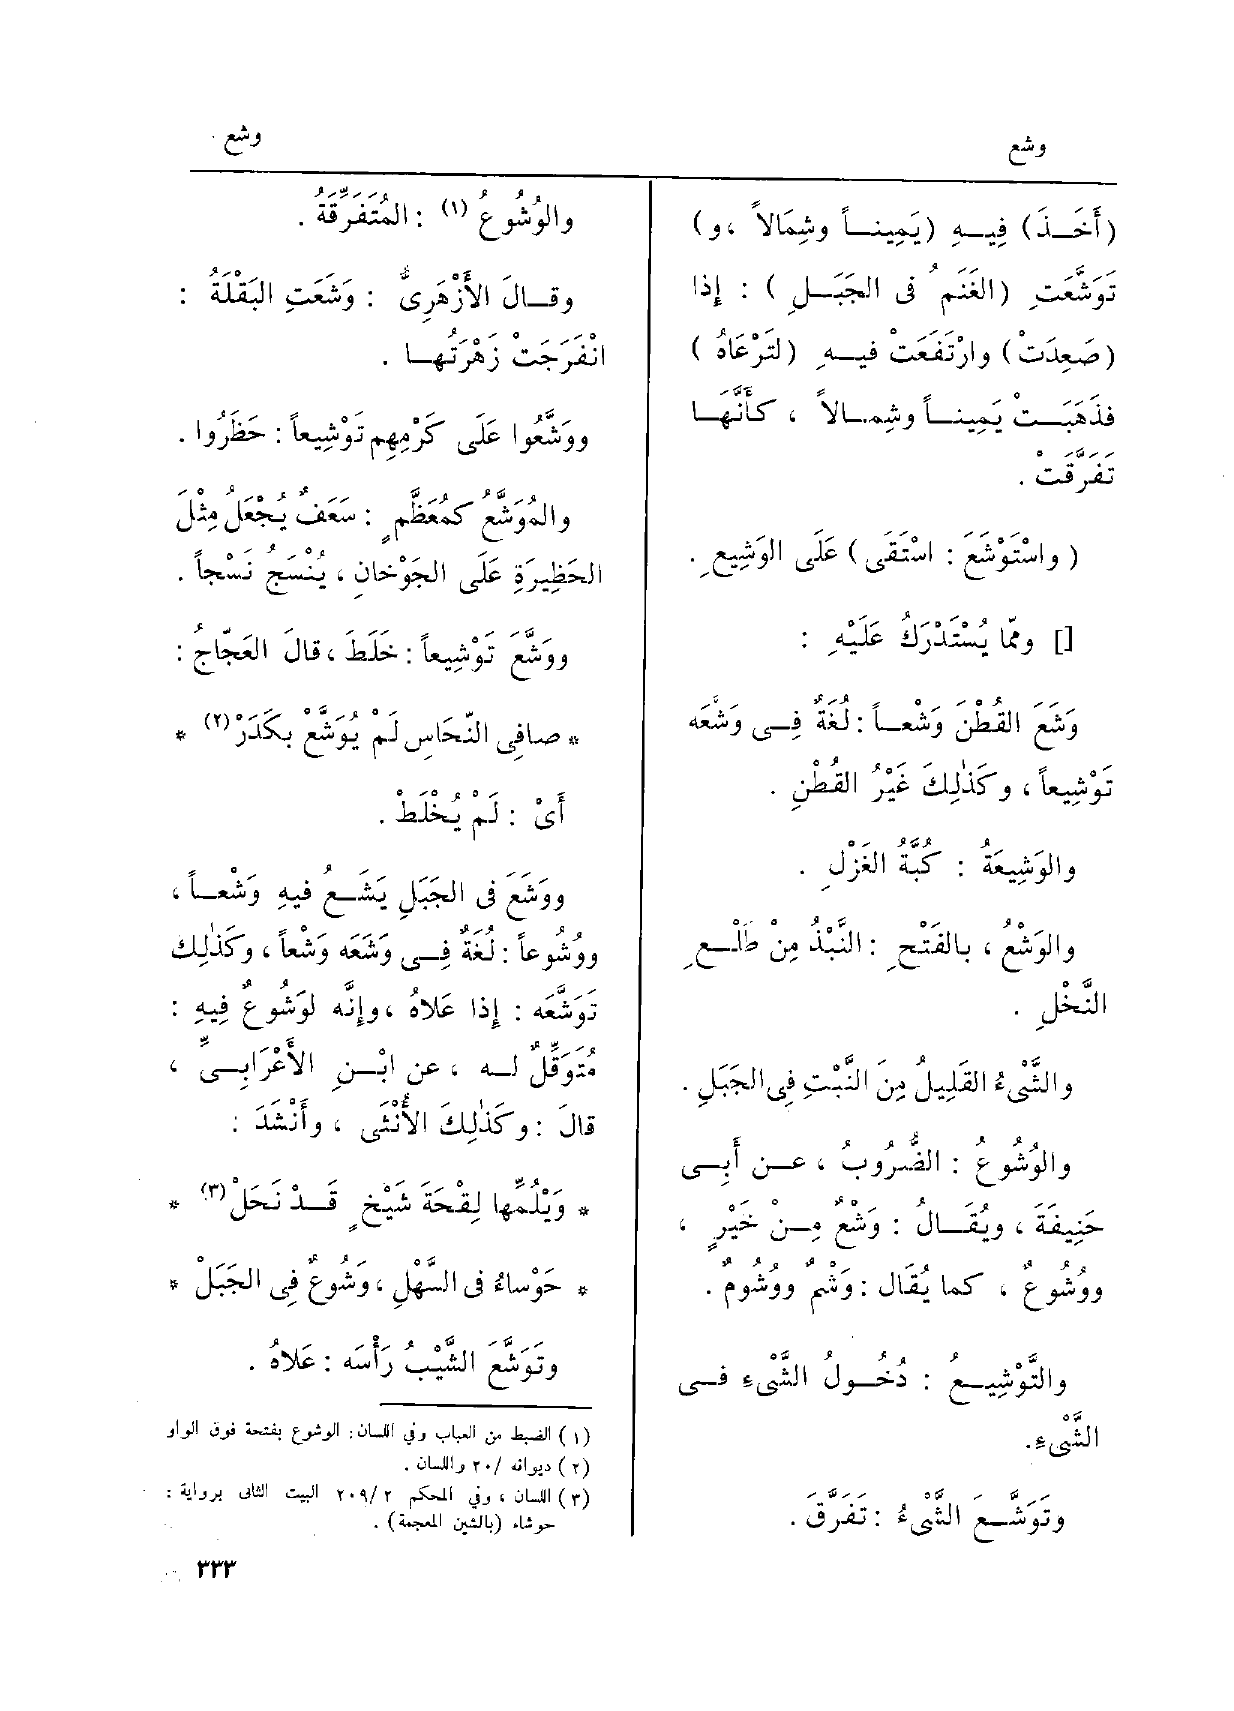 وشع
وشع
(أَخَـذَ) فِيـهِ (يَمِينـاً وشِمَالاً ، و)
تَوَشَّعَتِ (الغَنَمُ فى الجَبَـلِ) : إِذا
(صَعِدَتْ) وارْتَفَعَتْ فيـهِ (لتَرْعَاهُ)
فذَهَبَـتْ يَمِينـاً وشِمـالاً ، كأَنَّهَـا
تَفَرَّقَتْ .
(واسْتَوْشَعَ : اسْتَقَى) عَلَى الوَشِيعِ .
[] ومّا يُسْتَدْرَكُ عَلَيْهِ :
وَشَعَ القُطْنَ وَشْعـاً : لُغَةٌ فِـى وَشَّعَه
تَوْشِيعاً ، وكَذٰلِكَ غَيْرُ القُطْنِ .
والوَشِيعَةُ : كُبَّةُ الغَزْلِ .
والوَشْعُ ، بالفَتْحِ : النَّبْذُ مِنْ طَلْـعِ
النَّخْلِ .
والشَّىْءُ القَلِيلُ مِنَ النَّبْتِ فِى الجَبَلِ .
والوُشُوعُ : الضُّرُوبُ ، عـن أَبِـى
حَنِيفَةَ ، ويُقَـالُ : وَشْعٌ مِـنْ خَيْرٍ ،
ووُشُوعٌ ، كما يُقَال : وَشْمٌ ووُشُومٌ .
والتَّوْشِيـعُ : دُخُـولُ الشَّىْءِ فـى
الشَّىْءِ.
وتَوَشَّـعَ الشَّىْءُ : تَفَرَّقَ .
والوُشُوعُ (١) : المُتَفَرِّقَةُ .
وقـالَ الأَزْهَرِىُّ : وَشَعَتِ البَقْلَةُ :
انْفَرَجَتْ زَهْرَتُهـا .
ووَشَّعُوا عَلَى كَرْمِهِم تَوْشِيعاً : حَظَرُوا .
والمُوَشَّعُ كمُعَظَّمٍ : سَعَفٌ يُجْعَلُ مِثْلَ
الحَظِيرَةِ عَلَى الجَوْخانِ ، يُنْسَجُ نَسْجاً .
ووَشَّعَ تَوْشِيعاً : خَلَطَ ، قالَ العَجّاجُ :
* صافِى النّحَاسِ لَمْ يُوَشَّعْ بكَدَرْ (٢) *
أَىْ : لَمْ يُخْلَطْ .
ووَشَعَ فى الجَبَلِ يَشَـعُ فيهِ وَشْعـاً ،
ووُشُوعاً : لُغَةٌ فِـى وَشَعَه وَشْعاً ، وكَذٰلِكَ
تَوَشَّعَه : إِذا عَلاهُ ، وإِنَّه لوَشُوعٌ فِيهِ :
مُتَوَقِّلٌ لـه ، عن ابْـنِ الأَعْرَابِـىِّ ،
قالَ : وكَذٰلِكَ الأُنْثَى ، وأَنْشَدَ :
* وَيْلُمِّها لِقْحَةَ شَيْخٍ قَـدْ نَحَلْ (٣) *
* حَوْساءُ فى السَّهْلِ ، وَشُوعٌ فِى الجَبَلْ *
وتَوَشَّعَ الشَّيْبُ رَأْسَه : عَلاهُ .
(١) الضبط من العباب وفي اللسان: الوشوع بفتحة فوق الواو
(٢) ديوانه /٢٠ واللسان .
(٣) اللسان ، وفي المحكم ٢٠٩/٢ البيت الثانى برواية :
حوشاء (بالشين المعجمة) .
٣٣٣